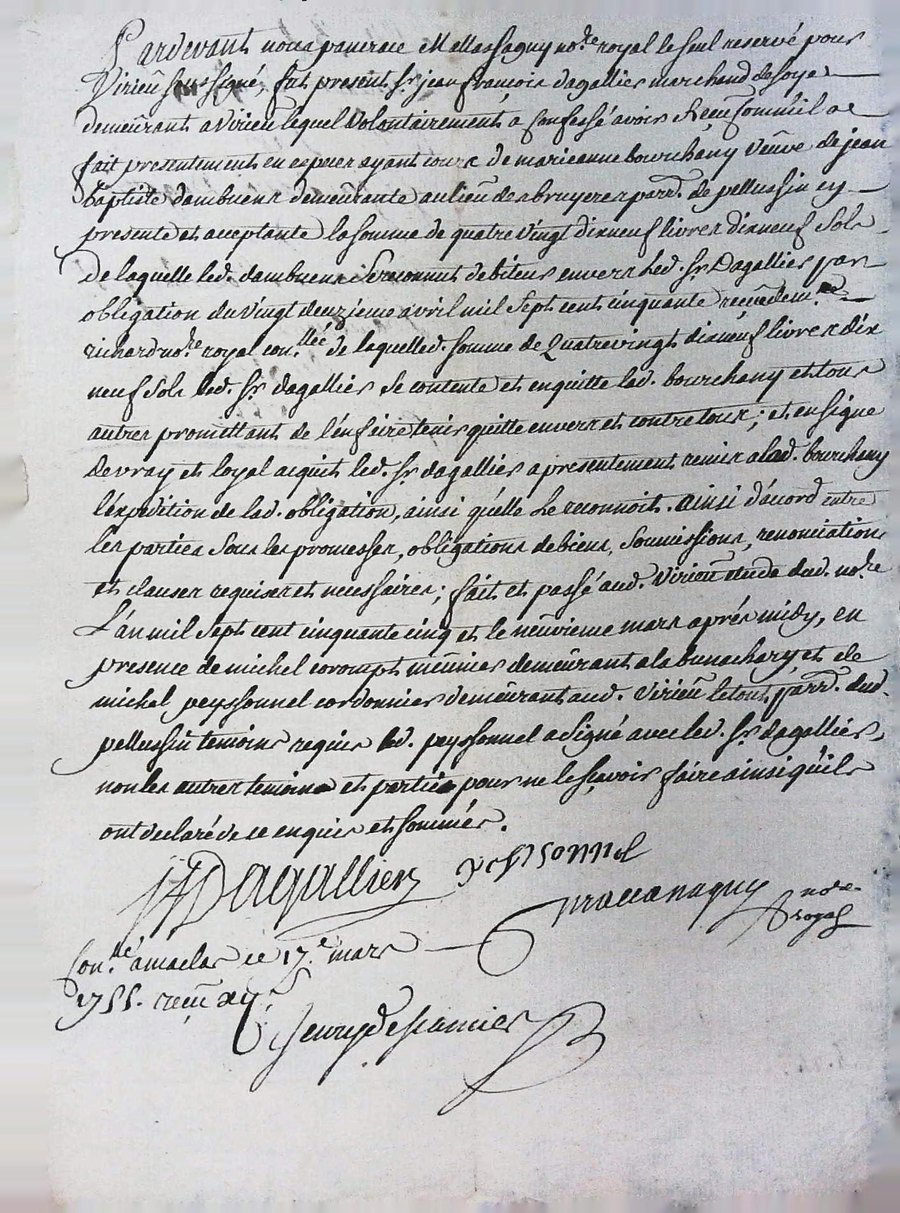 Pardevant nous pancrace Mellassaguy no.re royal le seul reservé pour
Virieu soussigné, fut present s.r jean francois dagallier marchand de soye
demeurant a Virieu lequel volontairement a confessé avoir receu comme il a
fait presentement en especes ayant cours de marieanne bourchany veuve de jean
baptiste dambuens demeurante au lieu des bruyeres parr. de pellussin cy
presente et acceptante la somme de quatre vingt dixneuf livres dixneuf sols
de laquelle led. dambuens se reconnut debiteur envers led. s.r Dagallier par
obligation du vingt deuzieme avril mil sept cent cinquante receüe dem.e
richard no.re royal con.llée de laquelle d. somme de quatrevingt dixneuf livres dix
neuf sols led. s.r dagallier se contente et en quitte lad. bourchany et tous
autres promettant de l'en faire tenir quitte envers et contre tous; et en signe
de vray et loyal acquit led. s.r dagallier a presentement remis a lad. bourchany
l'expedition de lad. obligation, ainsi qu'elle le reconnoit. ainsi d'acord entre
les parties sous les promesses, obligations de biens, soumissions, renonciations
et clauses requises et necessaires; fait et passé aud. Virieu etude dud. no.re
L'an mil sept cent cinquante cinq et le neuvieme mars aprés midy, en
presence de michel corompt meunier demeurant a la bunachary et de
michel peyssonnel cordonnier demeurant aud. Virieu le tout parr. dud.
pellussin temoins requis led. peyssonnel a signé avec led. s.r dagallier,
non les autres temoins et parties pour ne le sçavoir faire ainsi qu'ils
ont declaré de ce enquis et sommés.
JF Dagallier peyssonnel
no.re
royal
Con.llé a maclas le 17.e mars
1755. receu